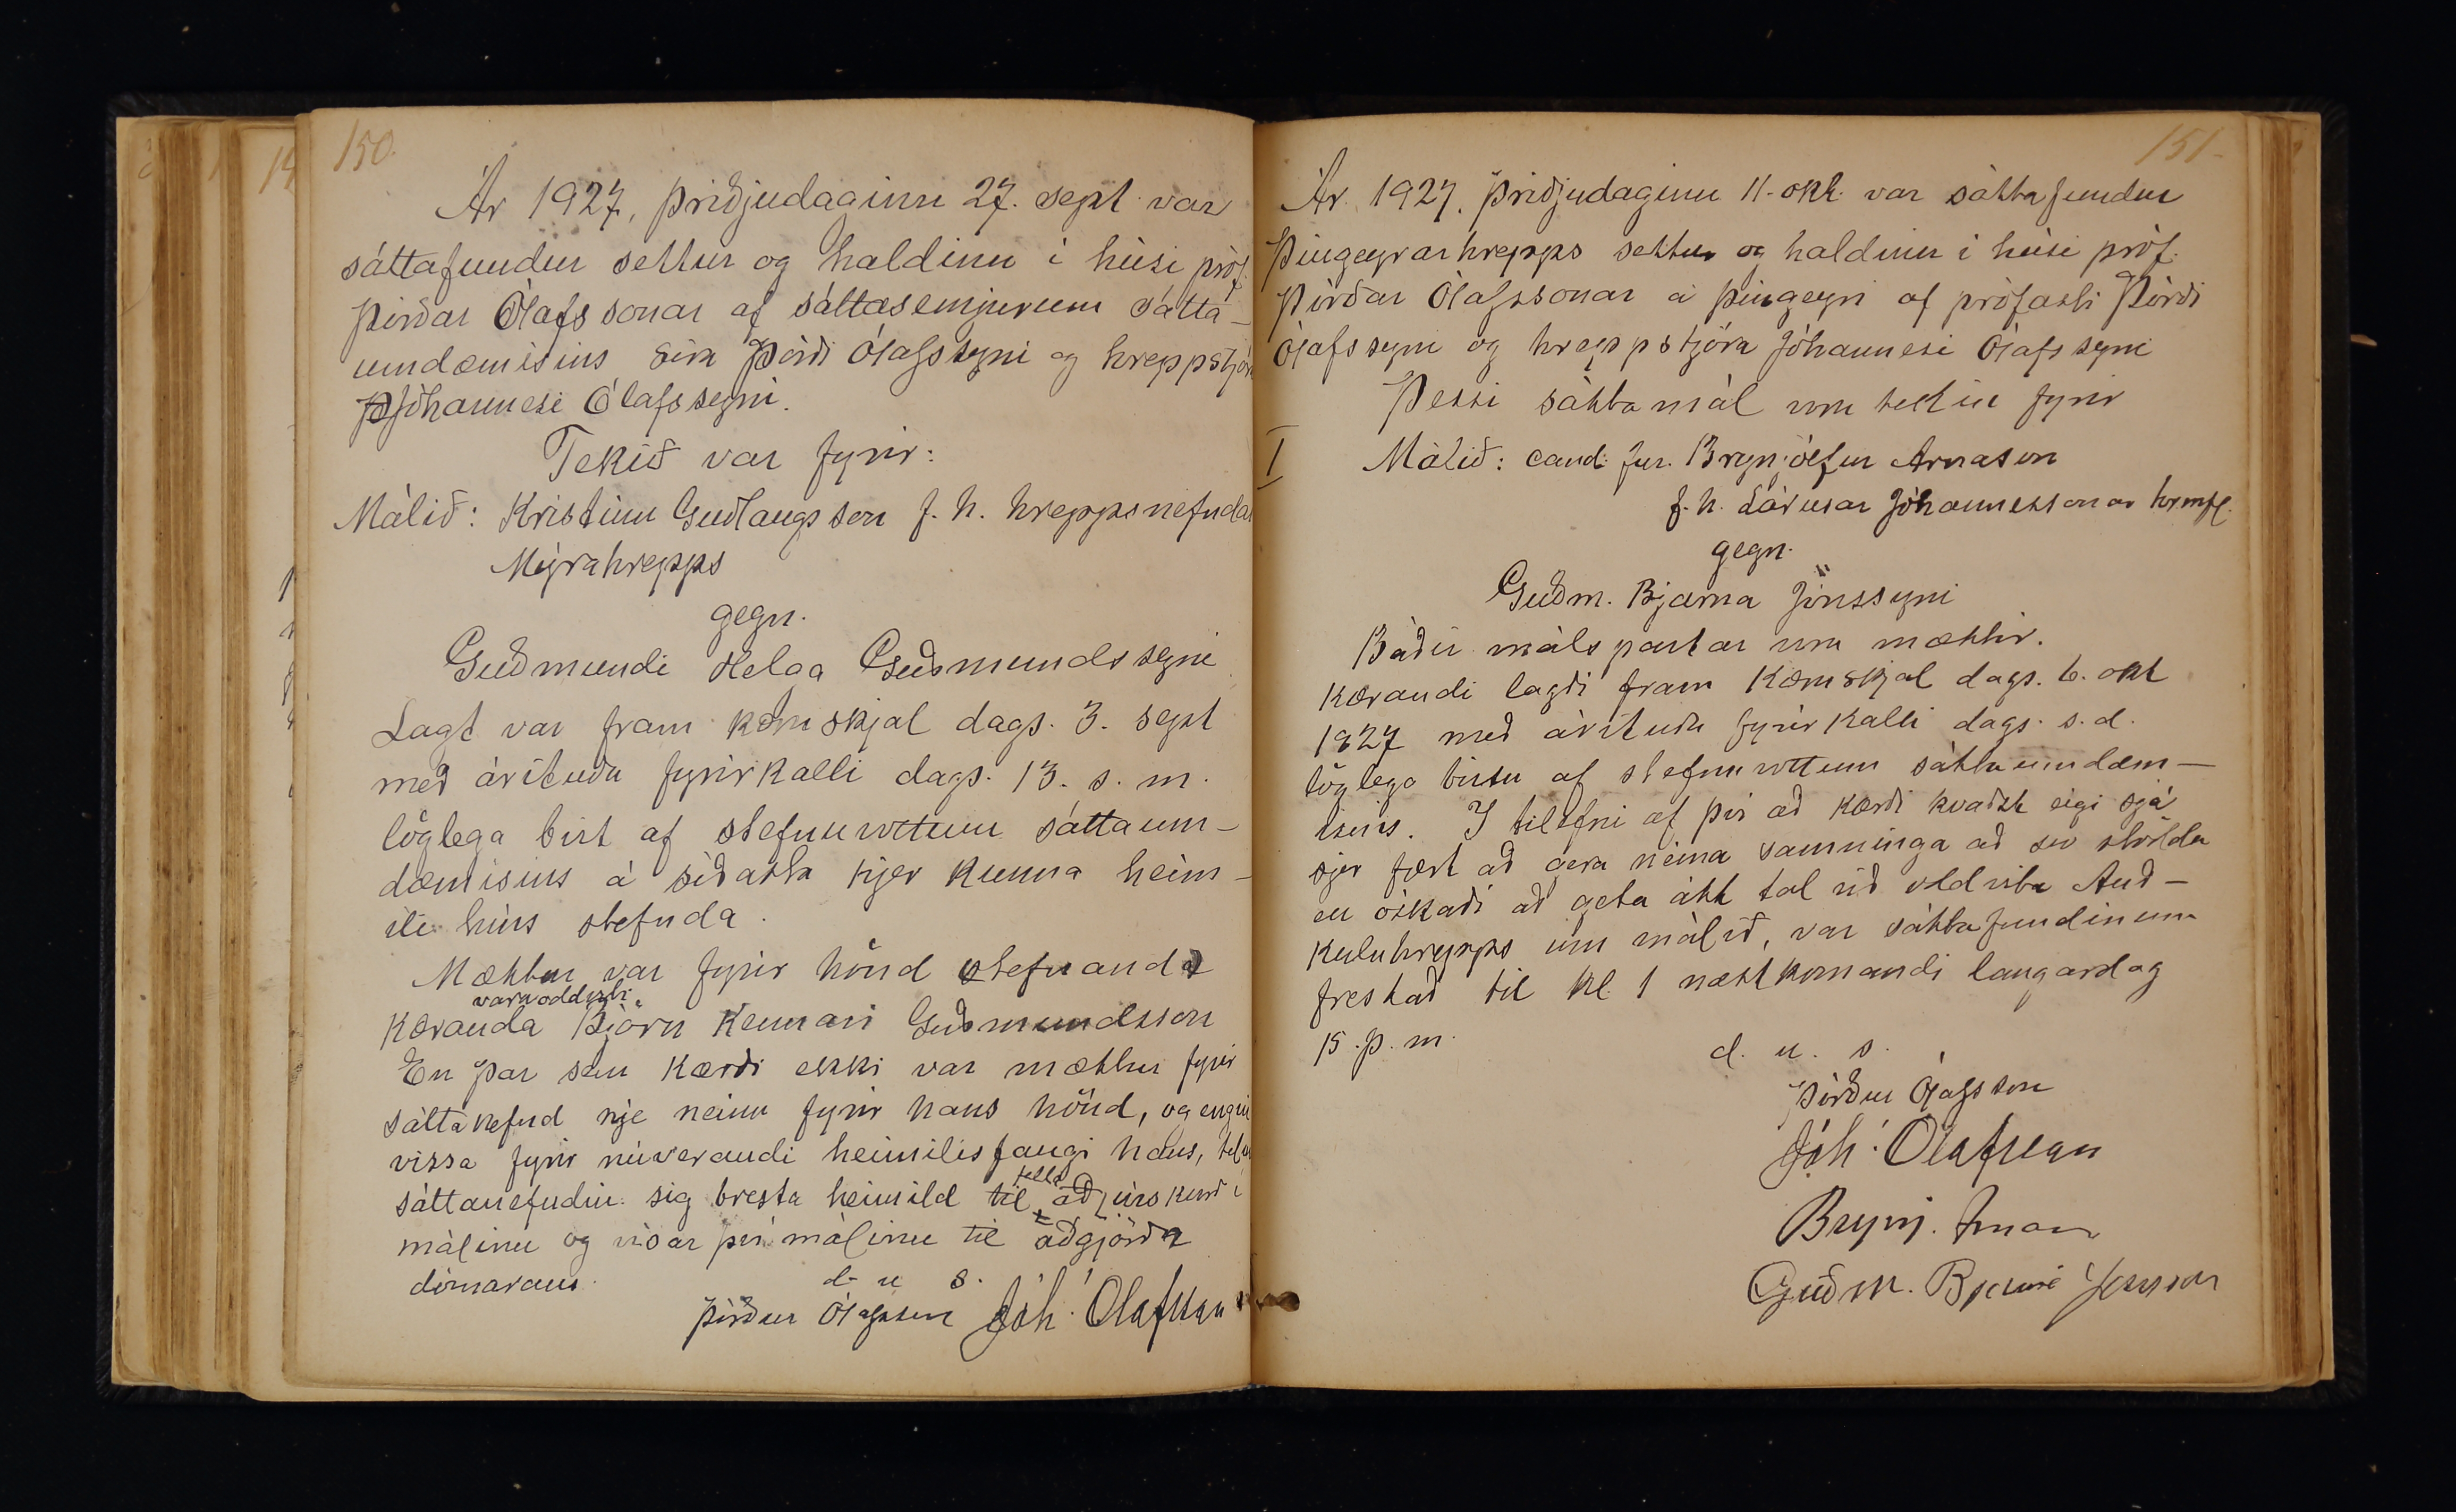 150.
Ár 1927, þriðjudaginn 27. sept var
sáttafundur settur og haldinn í húsi próf.
Þórðar Ólafssonar af sáttasemjurum sátta-
umdæmisins síra Þórði Ólafssyni og hreppstjóra
Jóhannesi Ólafssyni.
Tekið var fyrir:
Málið: Kristinn Guðlaugsson f. h. hreppsnefndar
Mýrahrepps
gegn.
Guðmundi Helga Guðmundssyni
Lagt var fram kæruskjal dags. 3. sept
með árituðu fyrirkalli dags. 13. s. m.
löglega birt af stefnuvottum sáttaum-
dæmisins á síðasta hjer kunna heim-
ili hins stefnda.
Mættur var fyrir hönd stefnanda
varaoddviti
Kæranda Björn kennari Guðmundsson
En þar sem kærði ekki var mættur fyrir
sáttanefnd nje neinn fyrir hans hönd, og engin
vissa fyrir núverandi heimilisfangi hans, telur
sáttanefndin sig bresta heimild til að úrskurð í
málinu og vísar því málinu til aðgjörða
dómarans.
d. u. s.
Þórður Ólafsson Jóh. Ólafsson
151-
Ár 1927, þriðjudaginn 11. okt. var sáttafundur
Þingeyrarhrepps settur og haldinn í húsi próf.
Þórðar Ólafssonar á Þingeyri af prófasti Þórði
Ólafssyni og hreppstjóra Jóhannesi Ólafssyni
Þessi sáttamál voru tekin fyrir
I Málið: cand. jur. Brynjólfur Árnason
f. h. Lárusar Jóhannessonar hrmfl.
gegn.
Guðm. Bjarna Jónssyni
Báðir málspartar voru mættir.
Kærandi lagði fram kæruskjal dags. 6. okt
1927 með árituðu fyrirkalli dags. s. d.
löglega birtu af stefnuvottum sáttaumdæm-
isins. I tilefni af því að kærði kvaðst eigi sjá
sjer fært að gera neina samninga að svo stöddu
en óskaði að geta átt tal við oddvita Auð-
kúluhrepps um málið, var sáttafundinum
frestað til kl. 1 næstkomandi laugardag
15. þ. m.
d. u. s.
Þórður Ólafsson
Jóh. Ólafsson
Brynj. Árnason
Guðm. Bjarni Jónsson